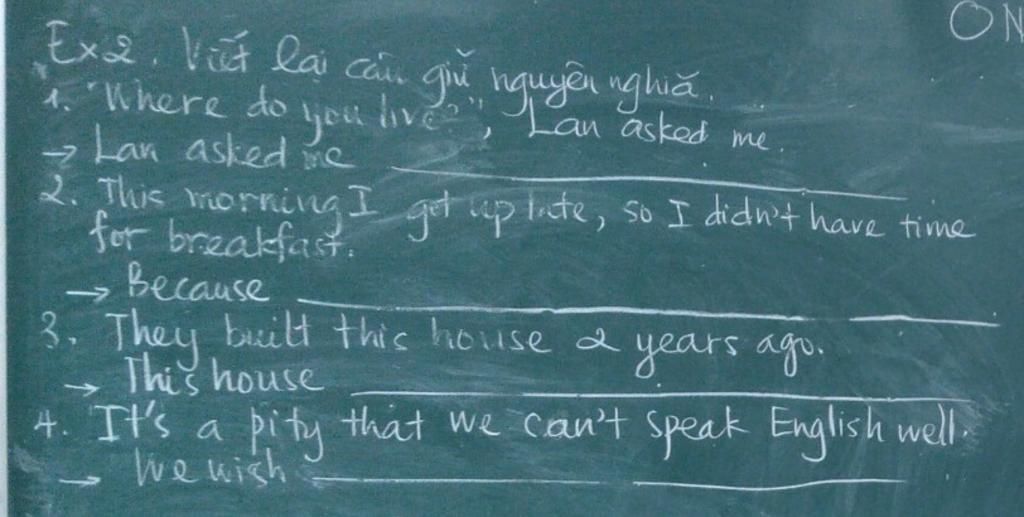 ON
Ex2. Viết lại câu giữ nguyên nghĩa.
1. "Where do you live?", Lan asked me.
→ Lan asked me
2. This morning I got up late, so I didn't have time
for breakfast.
→ Because
3. They built this house 2 years ago.
→ This house
4. It's a pity that we can't speak English well.
→ We wish